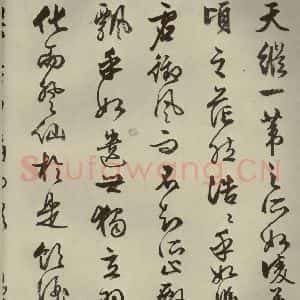 天縱一葦之所如凌萬
頃之茫然浩〻乎如馮
虛御風而不知其所止飄
飄乎如遺世獨立羽
化而登仙於是飲酒
Shufawang.CN